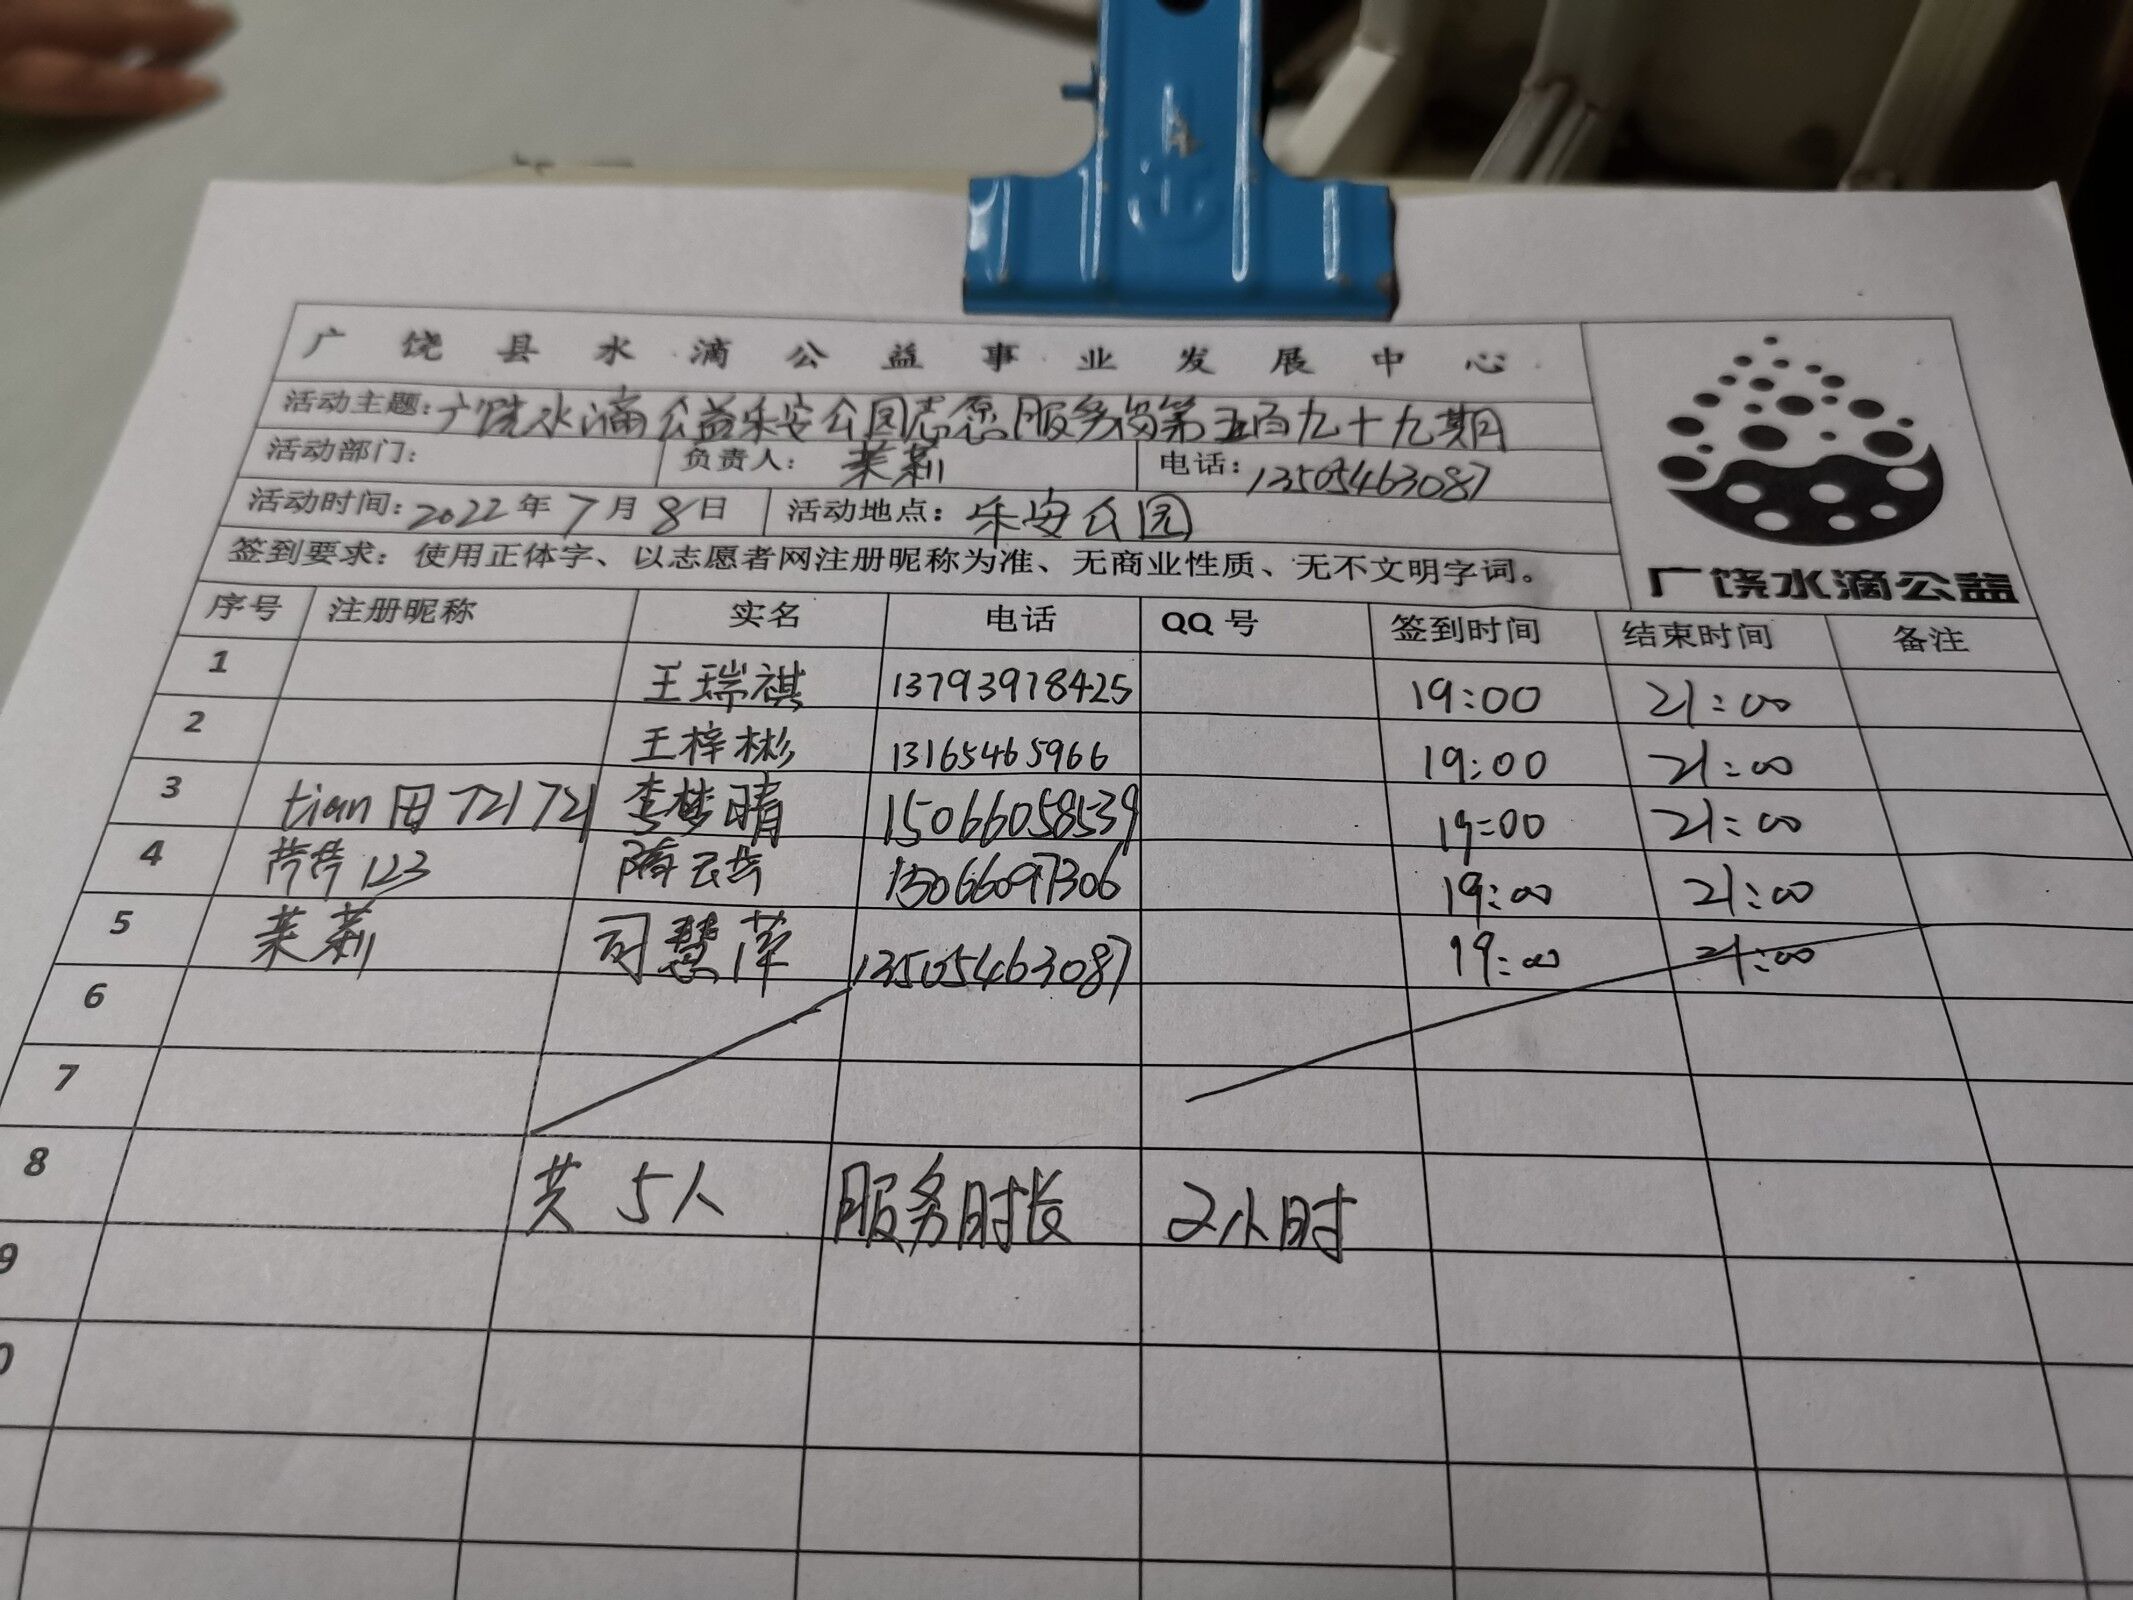 广饶县水滴公益事业发展中心
活动主题:广饶水滴公益乐安公园志愿服务岗第五百九十九期
活动部门: 负责人: 茉莉 电话: 13505463087
活动时间: 2022年7月8日 活动地点: 乐安公园
签到要求: 使用正体字、以志愿者网注册昵称为准、无商业性质、无不文明字词。
广饶水滴公益
序号 注册昵称 实名 电话 QQ号 签到时间 结束时间 备注
1 王瑞祺 13793978425 19:00 21:00
2 王梓彬 13165465966 19:00 21:00
3 tian田721721 李梦晴 15066058539 19:00 21:00
4 123 隋云 15066097306 19:00 21:00
5 茉莉 司慧萍 13505463087 19:00 21:00
6
7
8 共5人 服务时长 2小时
9
0